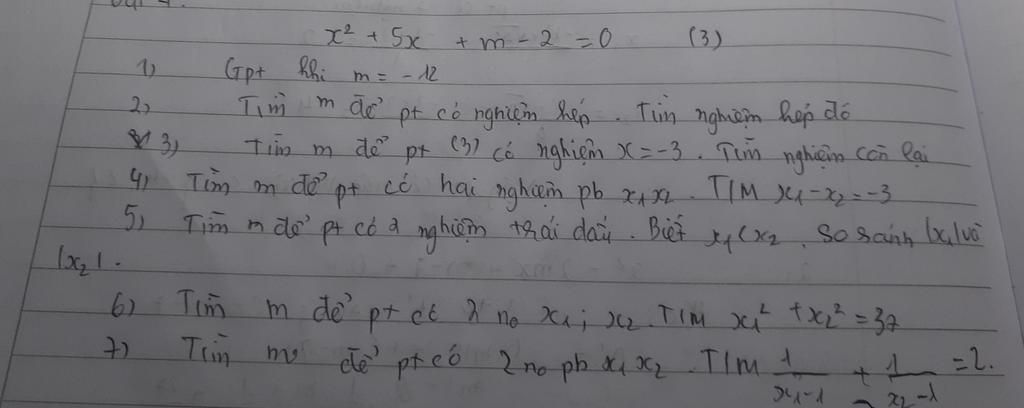 x² + 5x + m - 2 = 0 (3)
1) Gpt khi m = -12
2) Tìm m để pt có nghiệm kép. Tìm nghiệm kép đó
3) Tìm m để pt (3) có nghiệm x = -3. Tìm nghiệm còn lại
4) Tìm m để pt có hai nghiệm pb x₁ x₂. T/M x₁ - x₂ = -3
5) Tìm m để pt có 2 nghiệm trái dấu. Biết x₁ < x₂. So sánh |x₁| và
|x₂|.
6) Tìm m để pt có 2 n₀ x₁; x₂. T/M x₁² + x₂² = 37
7) Tìm m để pt có 2 n₀ pb x₁ x₂. T/M 1/(x₁-1) + 1/(x₂-1) = 2.